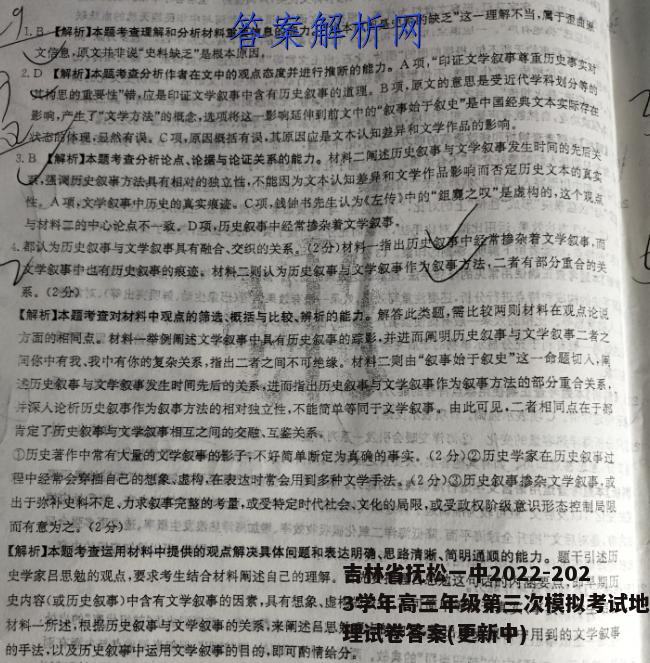 答案解析网
1. B 【解析】本题考查理解和分析材料
缺乏”这一理解不当,属于歪曲原
文信息,原文并非说“史料缺乏”是根本原因。
2. D 【解析】本题考查分析作者在文中的观点态度并进行推断的能力。A项,“印证文学叙事尊重历史事实对
其构思的重要性”错,应是印证文学叙事中含有历史叙事的道理。B项,原文的意思是受近代学科划分等的
影响,产生了“文学方法”的概念,选项将这一影响延伸到前文中的“叙事始于叙史”是中国经典文本实际存在
状态的体现,显然有误。C项,原因概括有误,其原因应是文本认知差异和文学作品的影响。
3. B 【解析】本题考查分析论点、论据与论证关系的能力。材料二阐述历史叙事与文学叙事发生时间的先后关
系,强调历史叙事方法具有相对的独立性,不能因为文本认知差异和文学作品影响而否定历史文本的真实
性。A项,文学叙事中历史的真实痕迹。C项,钱钟书先生认为《左传》中的“鉏麑之叹”是虚构的,这个观点
与材料二的中心论点不一致。D项,历史叙事中经常掺杂着文学叙事。
4. 都认为历史叙事与文学叙事具有融合、交织的关系。(2分)材料一指出历史叙事中经常掺杂着文学叙事,而
文学叙事中也有历史叙事的痕迹。材料二则认为历史叙事与文学叙事作为叙事方法,二者有部分重合的关
系。(2分)
【解析】本题考查对材料中观点的筛选、概括与比较、辨析的能力。解答此类题,需比较两则材料在观点论说
方面的相同点。材料一举例阐述文学叙事中具有历史叙事的踪影,并进而阐明历史叙事与文学叙事二者之
间你中有我、我中有你的复杂关系,指出二者之间不可绝缘。材料二则由“叙事始于叙史”这一命题切入,阐
述历史叙事与文学叙事发生时间先后的关系,进而指出历史叙事与文学叙事作为叙事方法的部分重合关系,
并深入论析历史叙事作为叙事方法的相对独立性,不能简单等同于文学叙事。由此可见,二者相同点在于都
肯定了历史叙事与文学叙事相互之间的交融、互鉴关系。
①历史著作中常有大量的文学叙事的影子,不好简单断定为真确的事实。(2分)②历史学家在历史叙事过
程中经常会穿插自己的想象、虚构,在表达时常会用到多种文学手法。(2分)③历史叙事掺杂文学叙事,或
出于弥补史料不足、力求叙事完整的考量,或受特定时代社会、文化的局限,或受政权阶级意识形态控制局限
而有意为之。(2分)
【解析】本题考查运用材料中提供的观点解决具体问题和表达明确、思路清晰、简明通顺的能力。题干引述历
史学家吕思勉的观点,要求考生结合材料阐述自己的理解。
即早期历
史内容(或历史叙事)中含有文学叙事的因素,具有想象、虚构
材料一所述,根据历史叙事与文学叙事的关系,来阐述吕思勉
中用到的文学叙事
的手法,以及历史叙事中运用文学叙事的目的,即可酌情给分。
吉林省抚松一中2022-202
3学年高三年级第三次模拟考试地
理试卷答案(更新中)